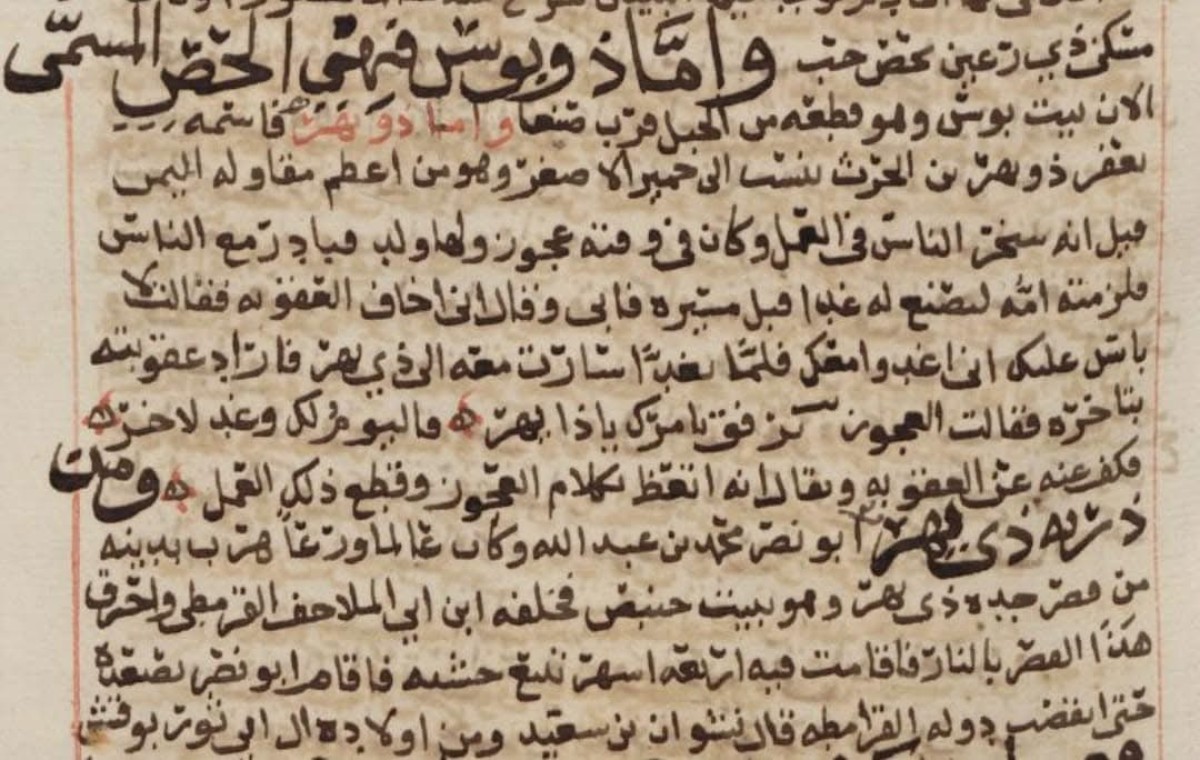 مسكن ذي رعين بحقل حقب واما ذو يوس فهي الحقل المسمى
الان بيت بوس وهو قطعه من الجبل قرب صنعا واما ذو يهر فاسمه
يعفر ذو يهر بن الحرث ينسب الى حمير الاصغر وهو من اعظم مقاوله اليمن
قيل انه سخر الناس في العمل وكان في وقته عجوز ولها ولد فبادر مع الناس
فلزمته امه لتصنع له غدا قبل مسيره فابى وقال اني اخاف العقوبه فقالت لا
باس عليك اني اغدوا معك فلما تغدا سارت معه الى ذي يهر فاراد عقوبته
بتاخره فقالت العجوز رفقا بامرك ياذا يهر فاليوم لك وغد لاخر
فكف عنه عن العقوبه ويقال انه اتعظ بكلام العجوز وقطع ذلك العمل ومن
ذريه ذي يهر ابو نصر محمد بن عبد الله وكان عالما ورعا هرب بدينه
من قصر جده ذي يهر وهو ببيت حنبص فخلفه ابن ابي الملاحف القرمطي واحرق
هذا القصر بالنار فاقامت فيه اربعه اسهر تتبع خشبه فاقام ابو نصر بصعده
حتى انقضت دوله القرامطه قال نشوان بن سعيد ومن اولاده ال ابي ثور